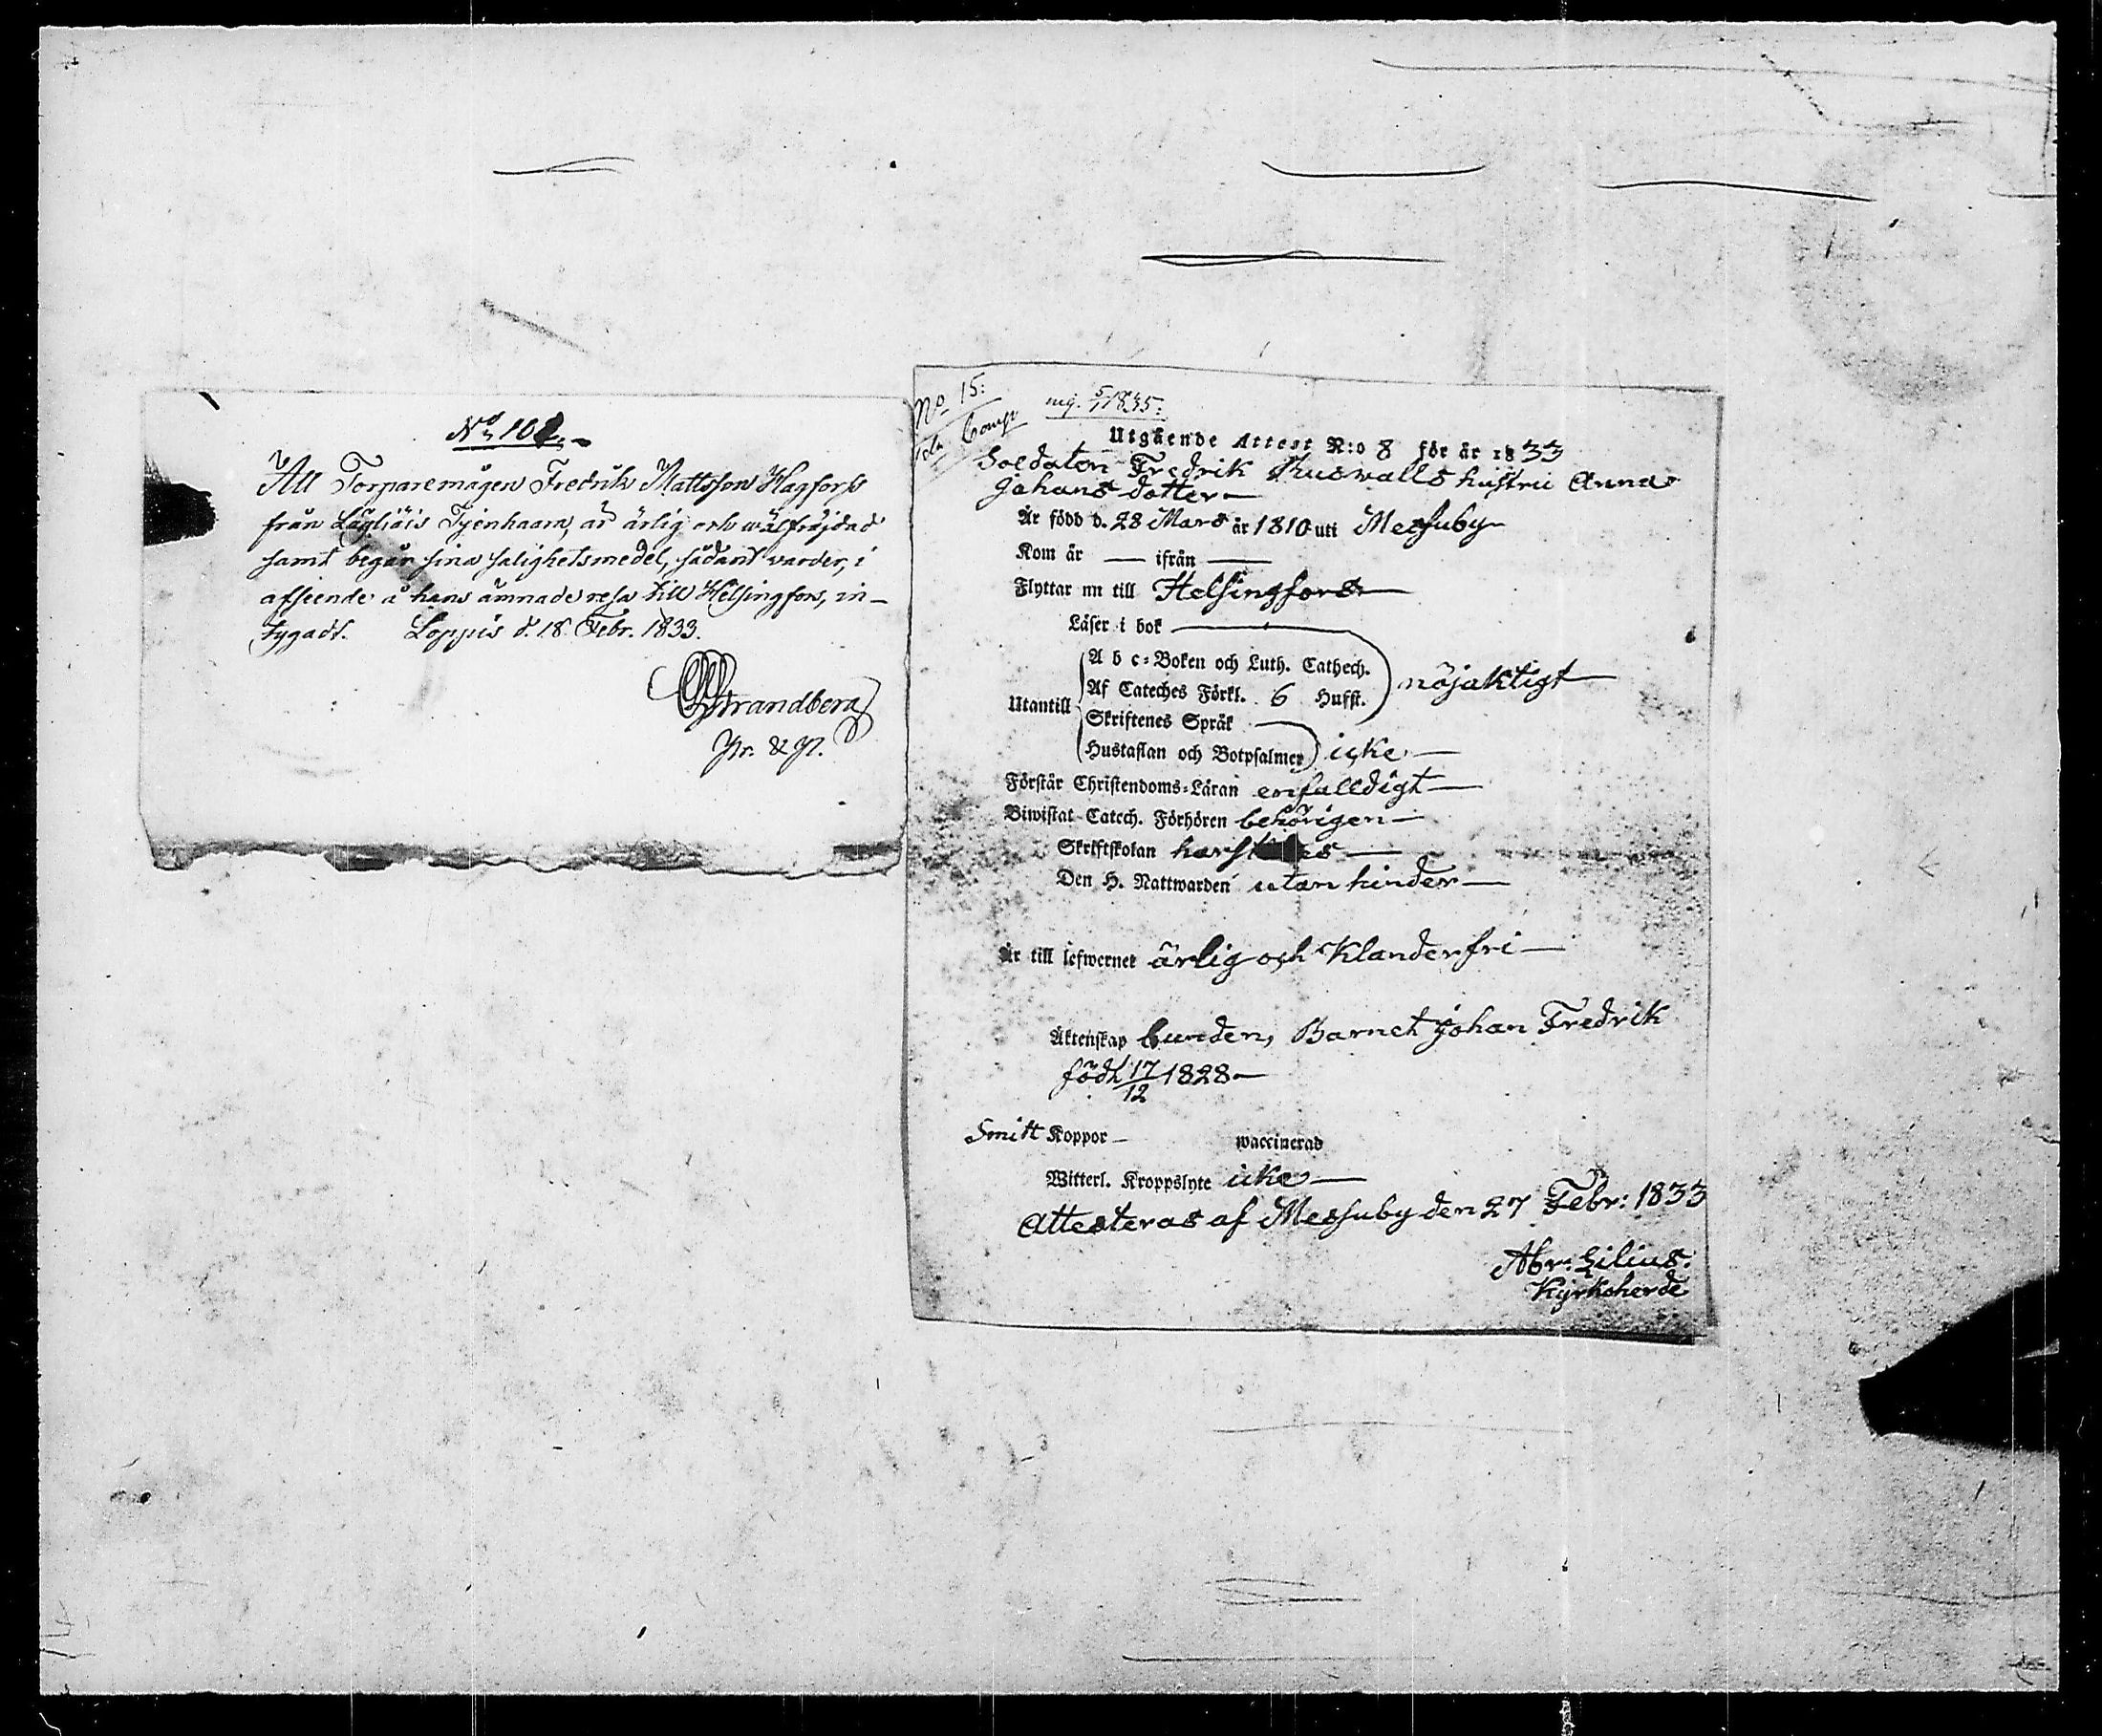 No 101.
Att Torparemågen Fredrik Mattsson Hagforss
från Läyliäis Tyenhaara, är ärlig och wälfräjdad
samt begår sina salighetsmedel, sådant varder, i
afseende å hans ämnade resa till Helsingfors, in-
tygadt. Loppis d. 18 Febr. 1833.
Strandberg
Pr. & P.
No 15:
1sta Comp
mg. 5/1 1835:
Utgående Attest N:o 8 för år 1833
Soldaten Fredrik Kuswalls hustru Anna
Johans dotter —
Är född d. 28 Mars år 1810 uti Messuby
Kom år — ifrån —
Flyttar nu till Helsingfors —
Läser i bok —
A b c-Boken och Luth. Cathech.
Af Cateches Förkl. 6 Hufst.
nöjaktigt —
Utantill
Skriftenes Språk —
Hustaflan och Botpsalmer icke —
Förstår Christendoms-Läran enfalldigt —
Biwistat Catech. Förhören behörigen —
Skriftskolan —
Den H. Nattwarden utan hinder —
Är till lefwernet ärlig och Klanderfri —
Äktenskap bunden, Barnet Johan Fredrik
född 17/12 1828 —
Smitt Koppor — waccinerad
Witterl. Kroppslyte icke —
Attesteras af Messuby den 27 Febr: 1833
Abr: Lilius.
Kyrkoherde